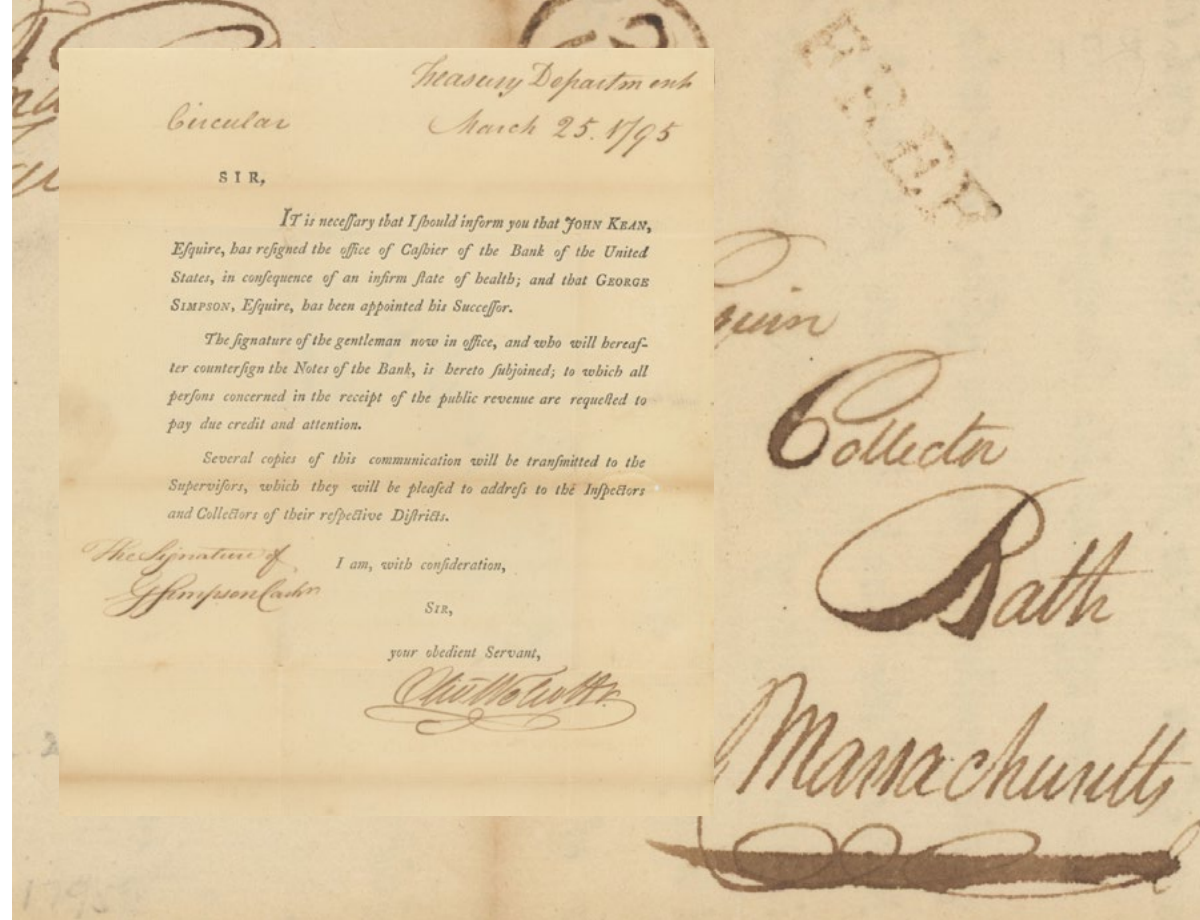 Treasury Department
Circular
March 25. 1795
SIR,
IT is neceſſary that I ſhould inform you that JOHN KEAN,
Eſquire, has reſigned the office of Caſhier of the Bank of the United
States, in conſequence of an infirm ſtate of health; and that GEORGE
SIMPSON, Eſquire, has been appointed his Succeſſor.
The ſignature of the gentleman now in office, and who will hereaf-
ter counterſign the Notes of the Bank, is hereto ſubjoined; to which all
perſons concerned in the receipt of the public revenue are requeſted to
pay due credit and attention.
Several copies of this communication will be tranſmitted to the
Superviſors, which they will be pleaſed to addreſs to the Inſpectors
and Collectors of their reſpective Diſtricts.
The Signature of
G Simpson Cashr
I am, with conſideration,
SIR,
your obedient Servant,
Oliv Wolcott Jr.
FREE
Collector
Bath
Massachusetts
1795